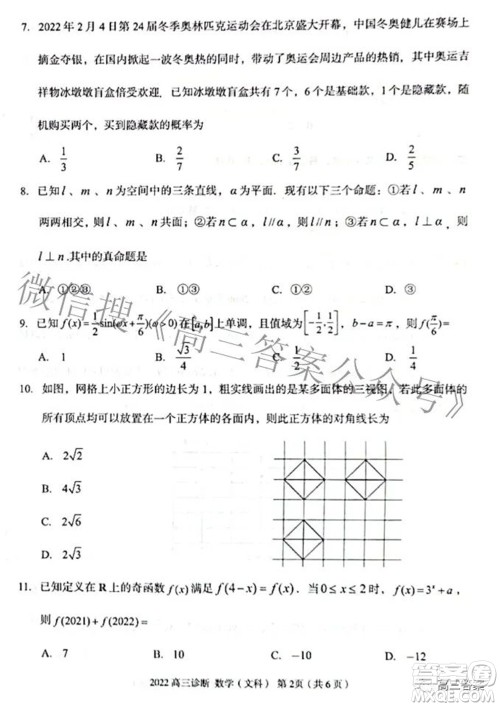 7. 2022年2月4日第24届冬季奥林匹克运动会在北京盛大开幕，中国冬奥健儿在赛场上
摘金夺银，在国内掀起一波冬奥热的同时，带动了奥运会周边产品的热销，其中奥运吉
祥物冰墩墩盲盒倍受欢迎. 已知冰墩墩盲盒共有7个，6个是基础款，1个是隐藏款，随
机购买两个，买到隐藏款的概率为
A. 1/3 B. 2/7 C. 3/7 D. 2/5
8. 已知 l 、m 、n 为空间中的三条直线，α为平面. 现有以下三个命题：①若 l 、m 、n
两两相交，则 l 、m 、n 共面；②若n⊂α，
l⊥n.其中的真命题是
A. ①②③ B. ①③
9. 已知 f(x)=1/2 sin(ωx+π/6)(ω>0)在[a,b]上单调，且值域为[-1/2, 1/2]，b-a=π，则 f(π/6)=
A. 1 B. √3/4 C. 1/2 D. 1/4
10. 如图，网格上小正方形的边长为1，粗实线画出的是某多面体的三视图. 若此多面体的
所有顶点均可以放置在一个正方体的各面内，则此正方体的对角线长为
A. 2√2
B. 4√3
C. 2√6
D. 2√3
11. 已知定义在 R 上的奇函数 f(x) 满足 f(4-x)=f(x). 当 0≤x≤2 时，f(x)=3ˣ+a，
则 f(2021)+f(2022)=
A. 7 B. 10 C. -10 D. -12
2022高三诊断 数学（文科） 第2页（共6页）
微信搜《高三答案公众号》
高三答案